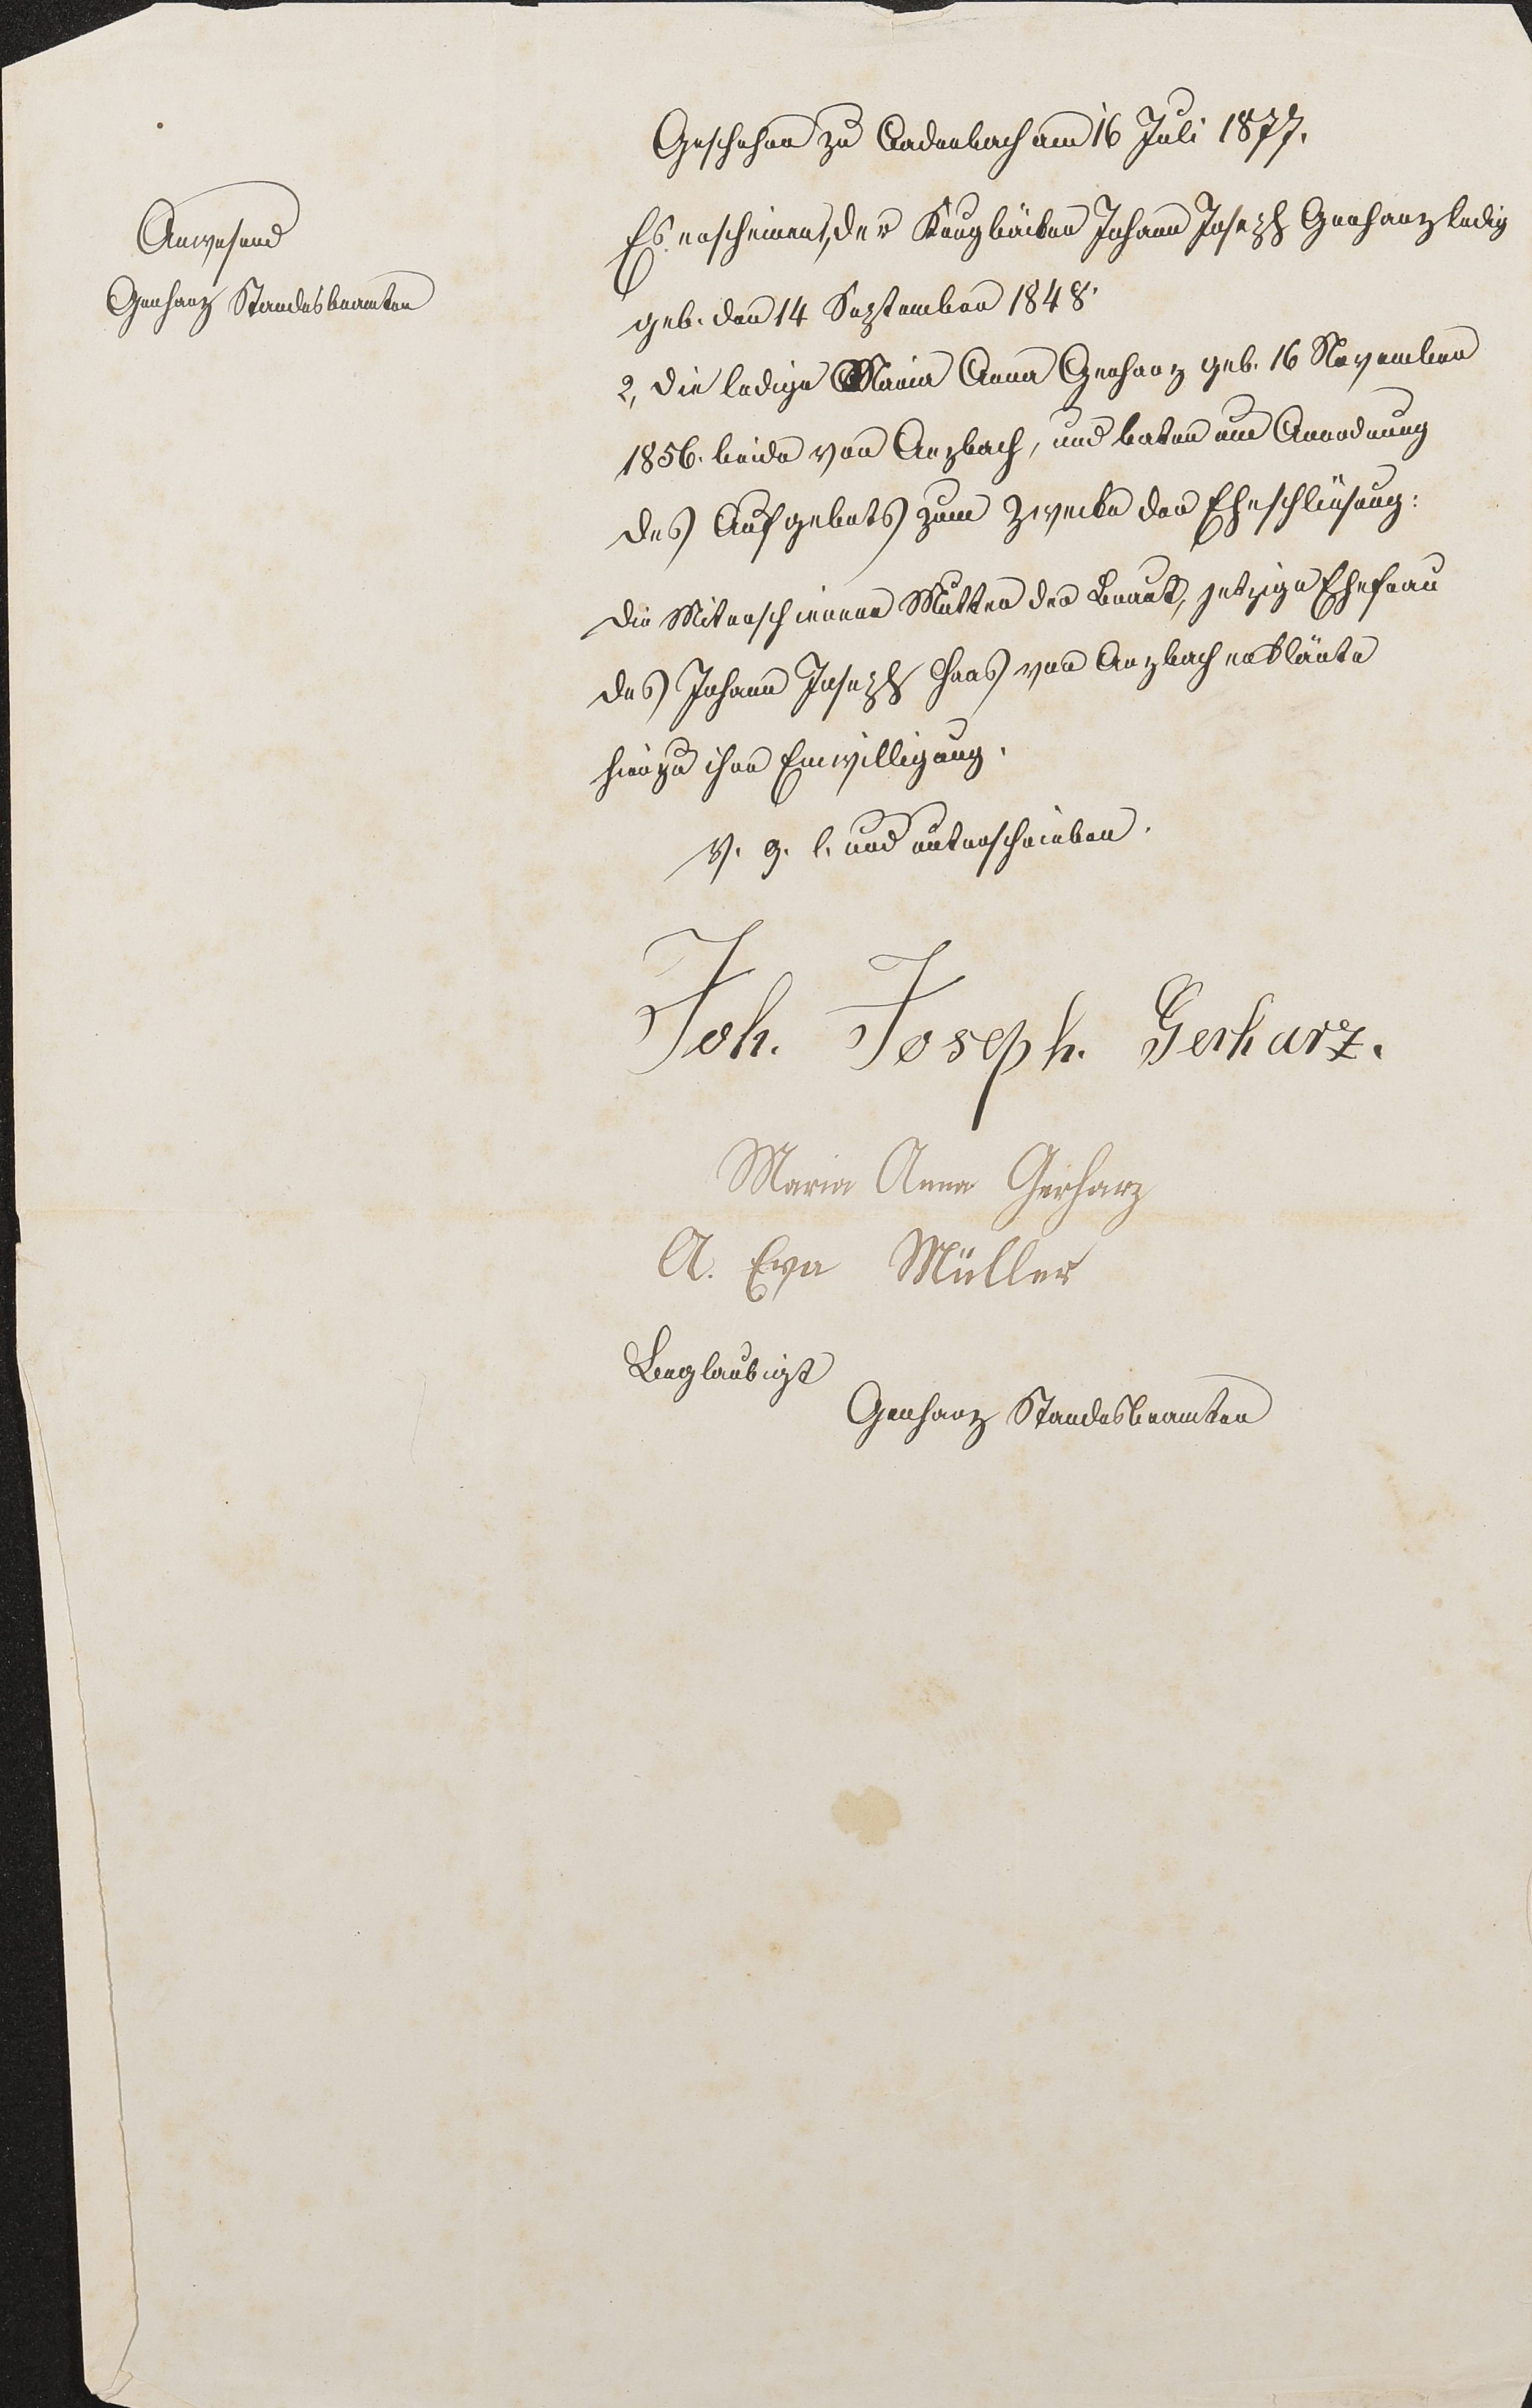 Geschehen zu Cadenbach am 16 Juli 1877.
Anwesend
Gerharz Standesbeamter
Es erscheinen 1, der Krugbäcker Johann Joseph Gerharz ledig
geb. den 14 September 1848.
2, die ledige Maria Anna Gerharz geb. 16 November
1856. beide von Arzbach, und baten um Anordnung
des Aufgebots zum Zwecke der Eheschliesung:
Die Miterschienene Mutter der Braut, jetzige Ehefrau
des Johann Joseph Haas von Arzbach erklärte
hierzu ihre Einwilligung.
V. g. l. und unterschrieben.
Joh. Joseph. Gerharz.
Maria Anna Gerharz
A. Eva Müller
Beglaubigt
Gerharz Standesbeamter